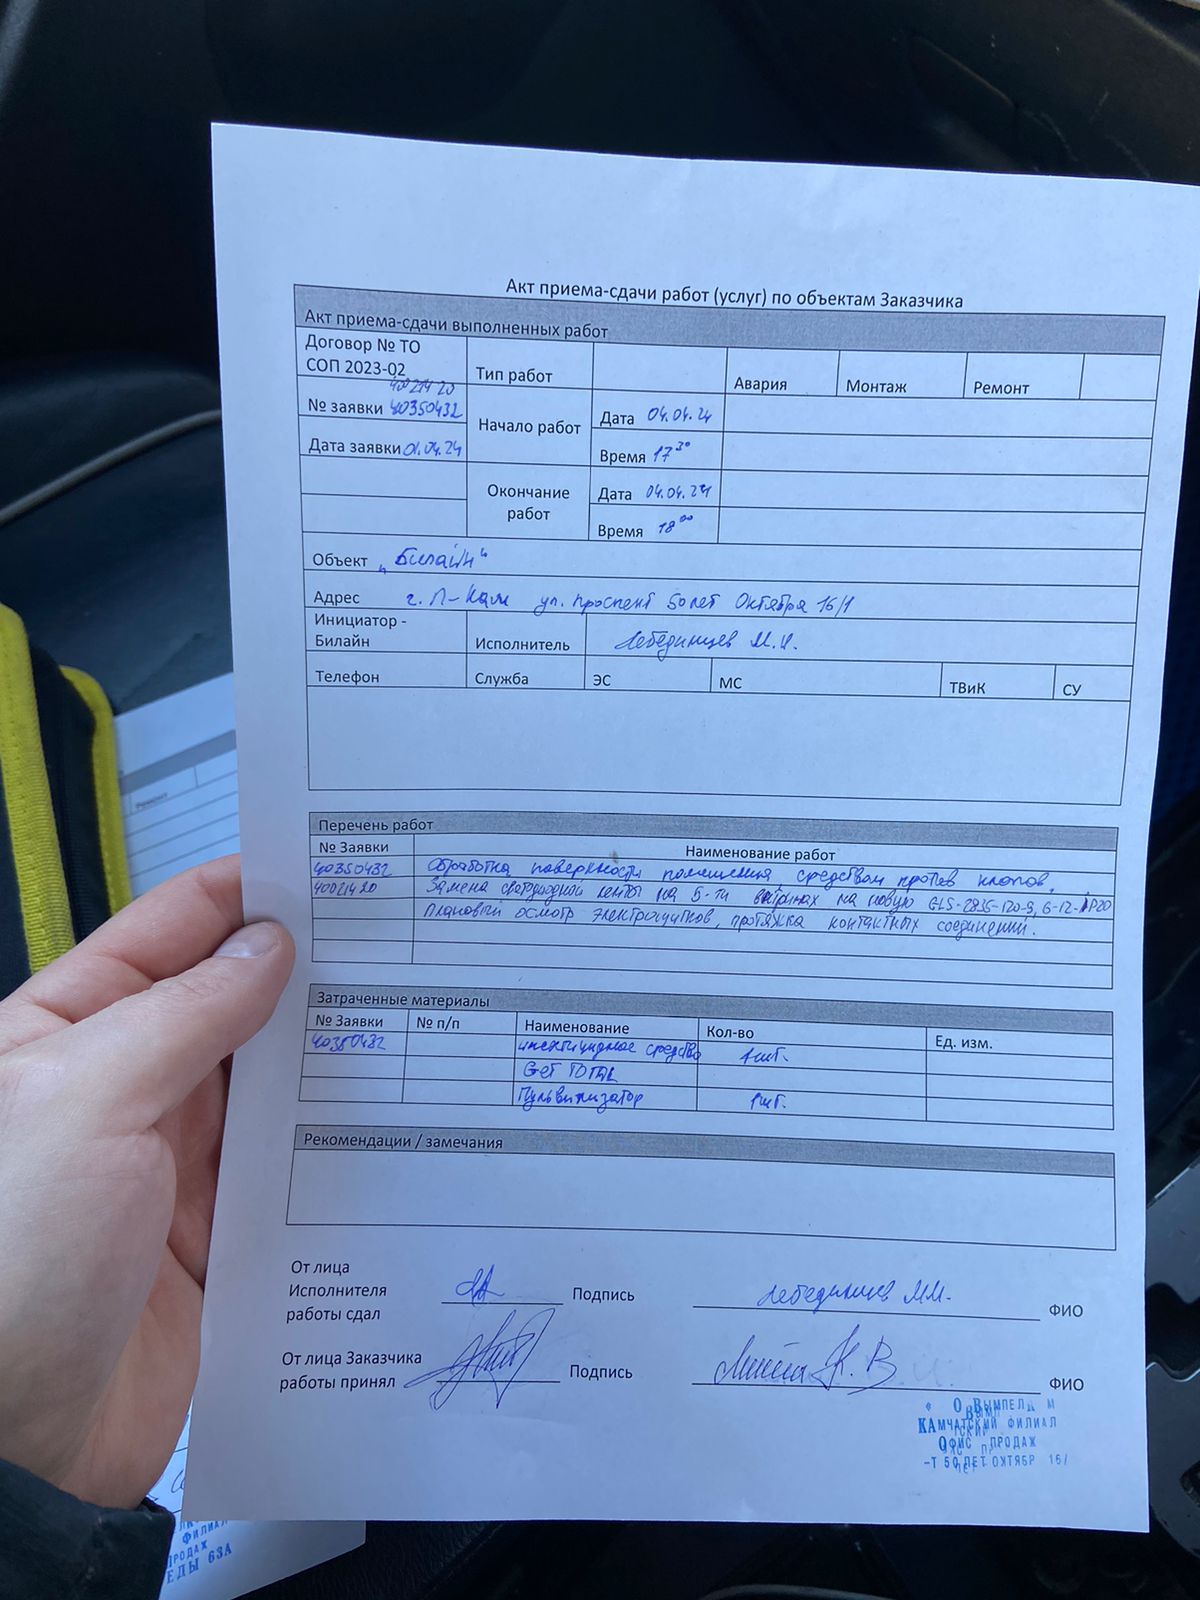 Акт приема-сдачи работ (услуг) по объектам Заказчика
Акт приема-сдачи выполненных работ
Договор № ТО
СОП 2023-02
Тип работ
Авария
Монтаж
Ремонт
40021420
№ заявки 40350432
Начало работ
Дата 04.04.24
Дата заявки 01.04.24
Время 17 30
Окончание
работ
Дата 04.04.24
Время 18 00
Объект „Билайн“
Адрес г. П-Кам ул. проспект 50 лет Октября 16/1
Инициатор -
Билайн
Исполнитель Лебединцев М.И.
Телефон
Служба
ЭС
МС
ТВиК
СУ
Перечень работ
№ Заявки
Наименование работ
40350432 Обработка поверхности помещения средством против клопов.
40021420 Замена светодиодной ленты на 5-ти витринах на новую GLS-2835-120-9,6-12-IP20
Плановый осмотр электрощитков, протяжка контактных соединений.
Затраченные материалы
№ Заявки
№ п/п
Наименование
Кол-во
Ед. изм.
40350432 инсектицидное средство 1шт.
GET TOTAL
Пульвилизатор 1шт.
Рекомендации / замечания
От лица
Исполнителя
работы сдал
Подпись
Лебединцев М.И.
ФИО
От лица Заказчика
работы принял
Подпись
К. В
ФИО
КАМЧАТСКИЙ ФИЛИАЛ
ОФИС ПРОДАЖ
-Т 50 ЛЕТ ОКТЯБР 16/
Ремонт
ФИЛИАЛ
РОДАЖ
ЕДЫ 63А